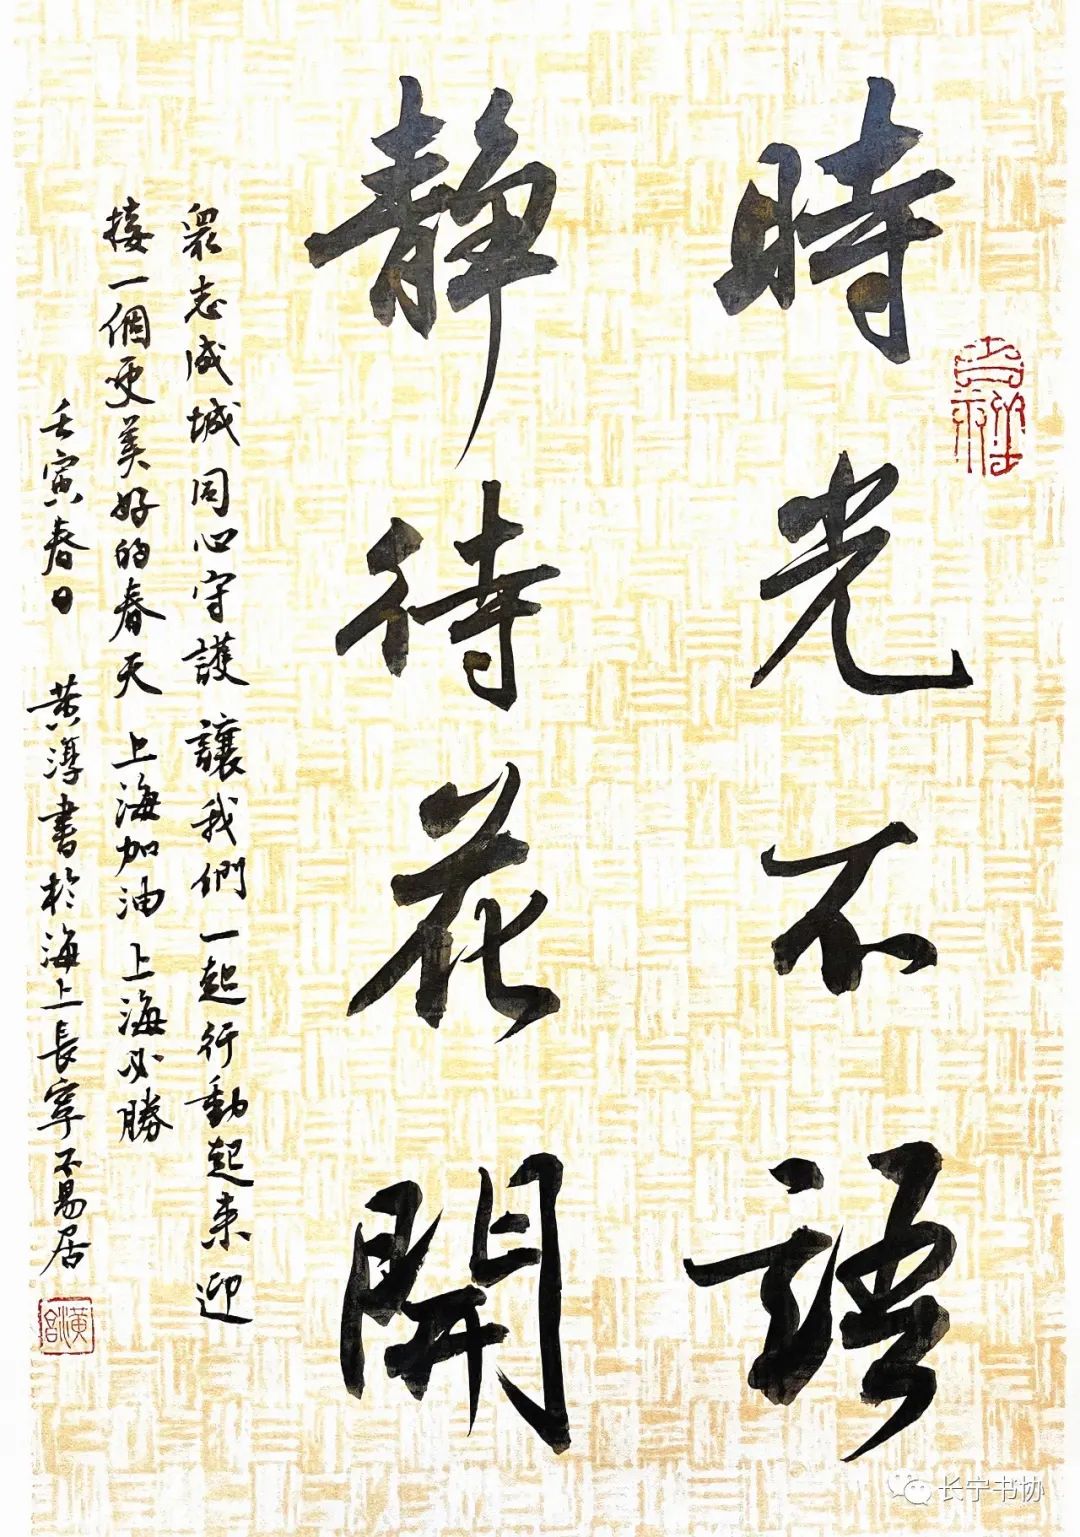 時光不語
靜待花開
衆志成城同心守護讓我們一起行動起来迎
接一個更美好的春天上海加油上海必勝
壬寅春日 黄淳書於海上長寧不易居
长宁书协